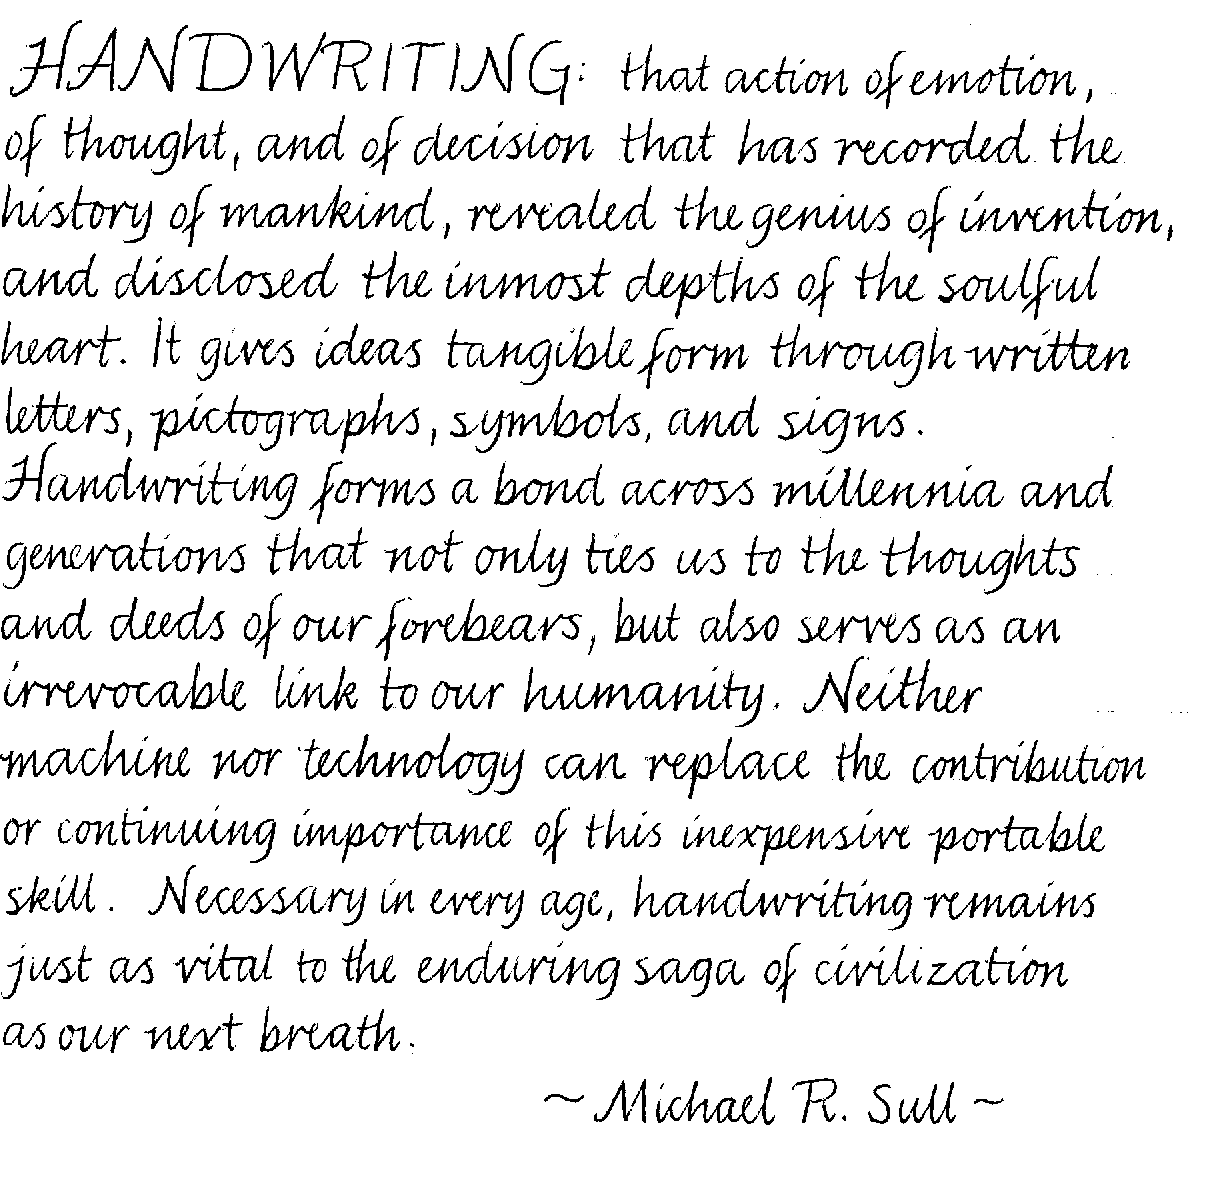 HANDWRITING: that action of emotion,
of thought, and of decision that has recorded the
history of mankind, revealed the genius of invention,
and disclosed the inmost depths of the soulful
heart. It gives ideas tangible form through written
letters, pictographs, symbols, and signs.
Handwriting forms a bond across millennia and
generations that not only ties us to the thoughts
and deeds of our forebears, but also serves as an
irrevocable link to our humanity. Neither
machine nor technology can replace the contribution
or continuing importance of this inexpensive portable
skill. Necessary in every age, handwriting remains
just as vital to the enduring saga of civilization
as our next breath.
~ Michael R. Sull ~